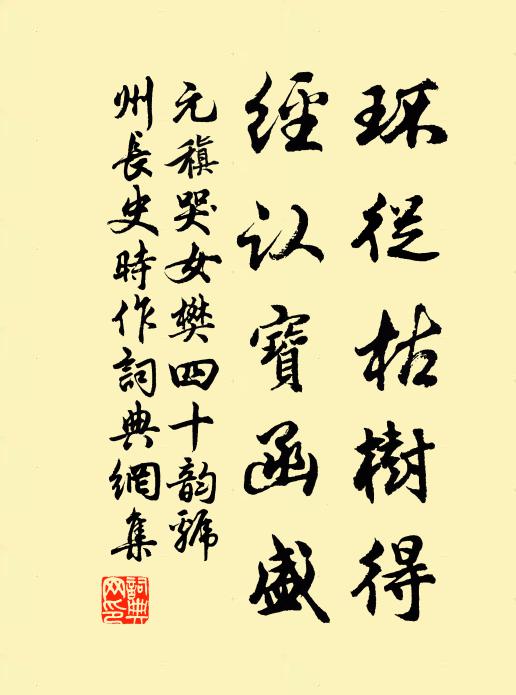 环從枯樹得
經认寶函盛
元稹哭女樊四十韵虢
州長史時作詞典網集